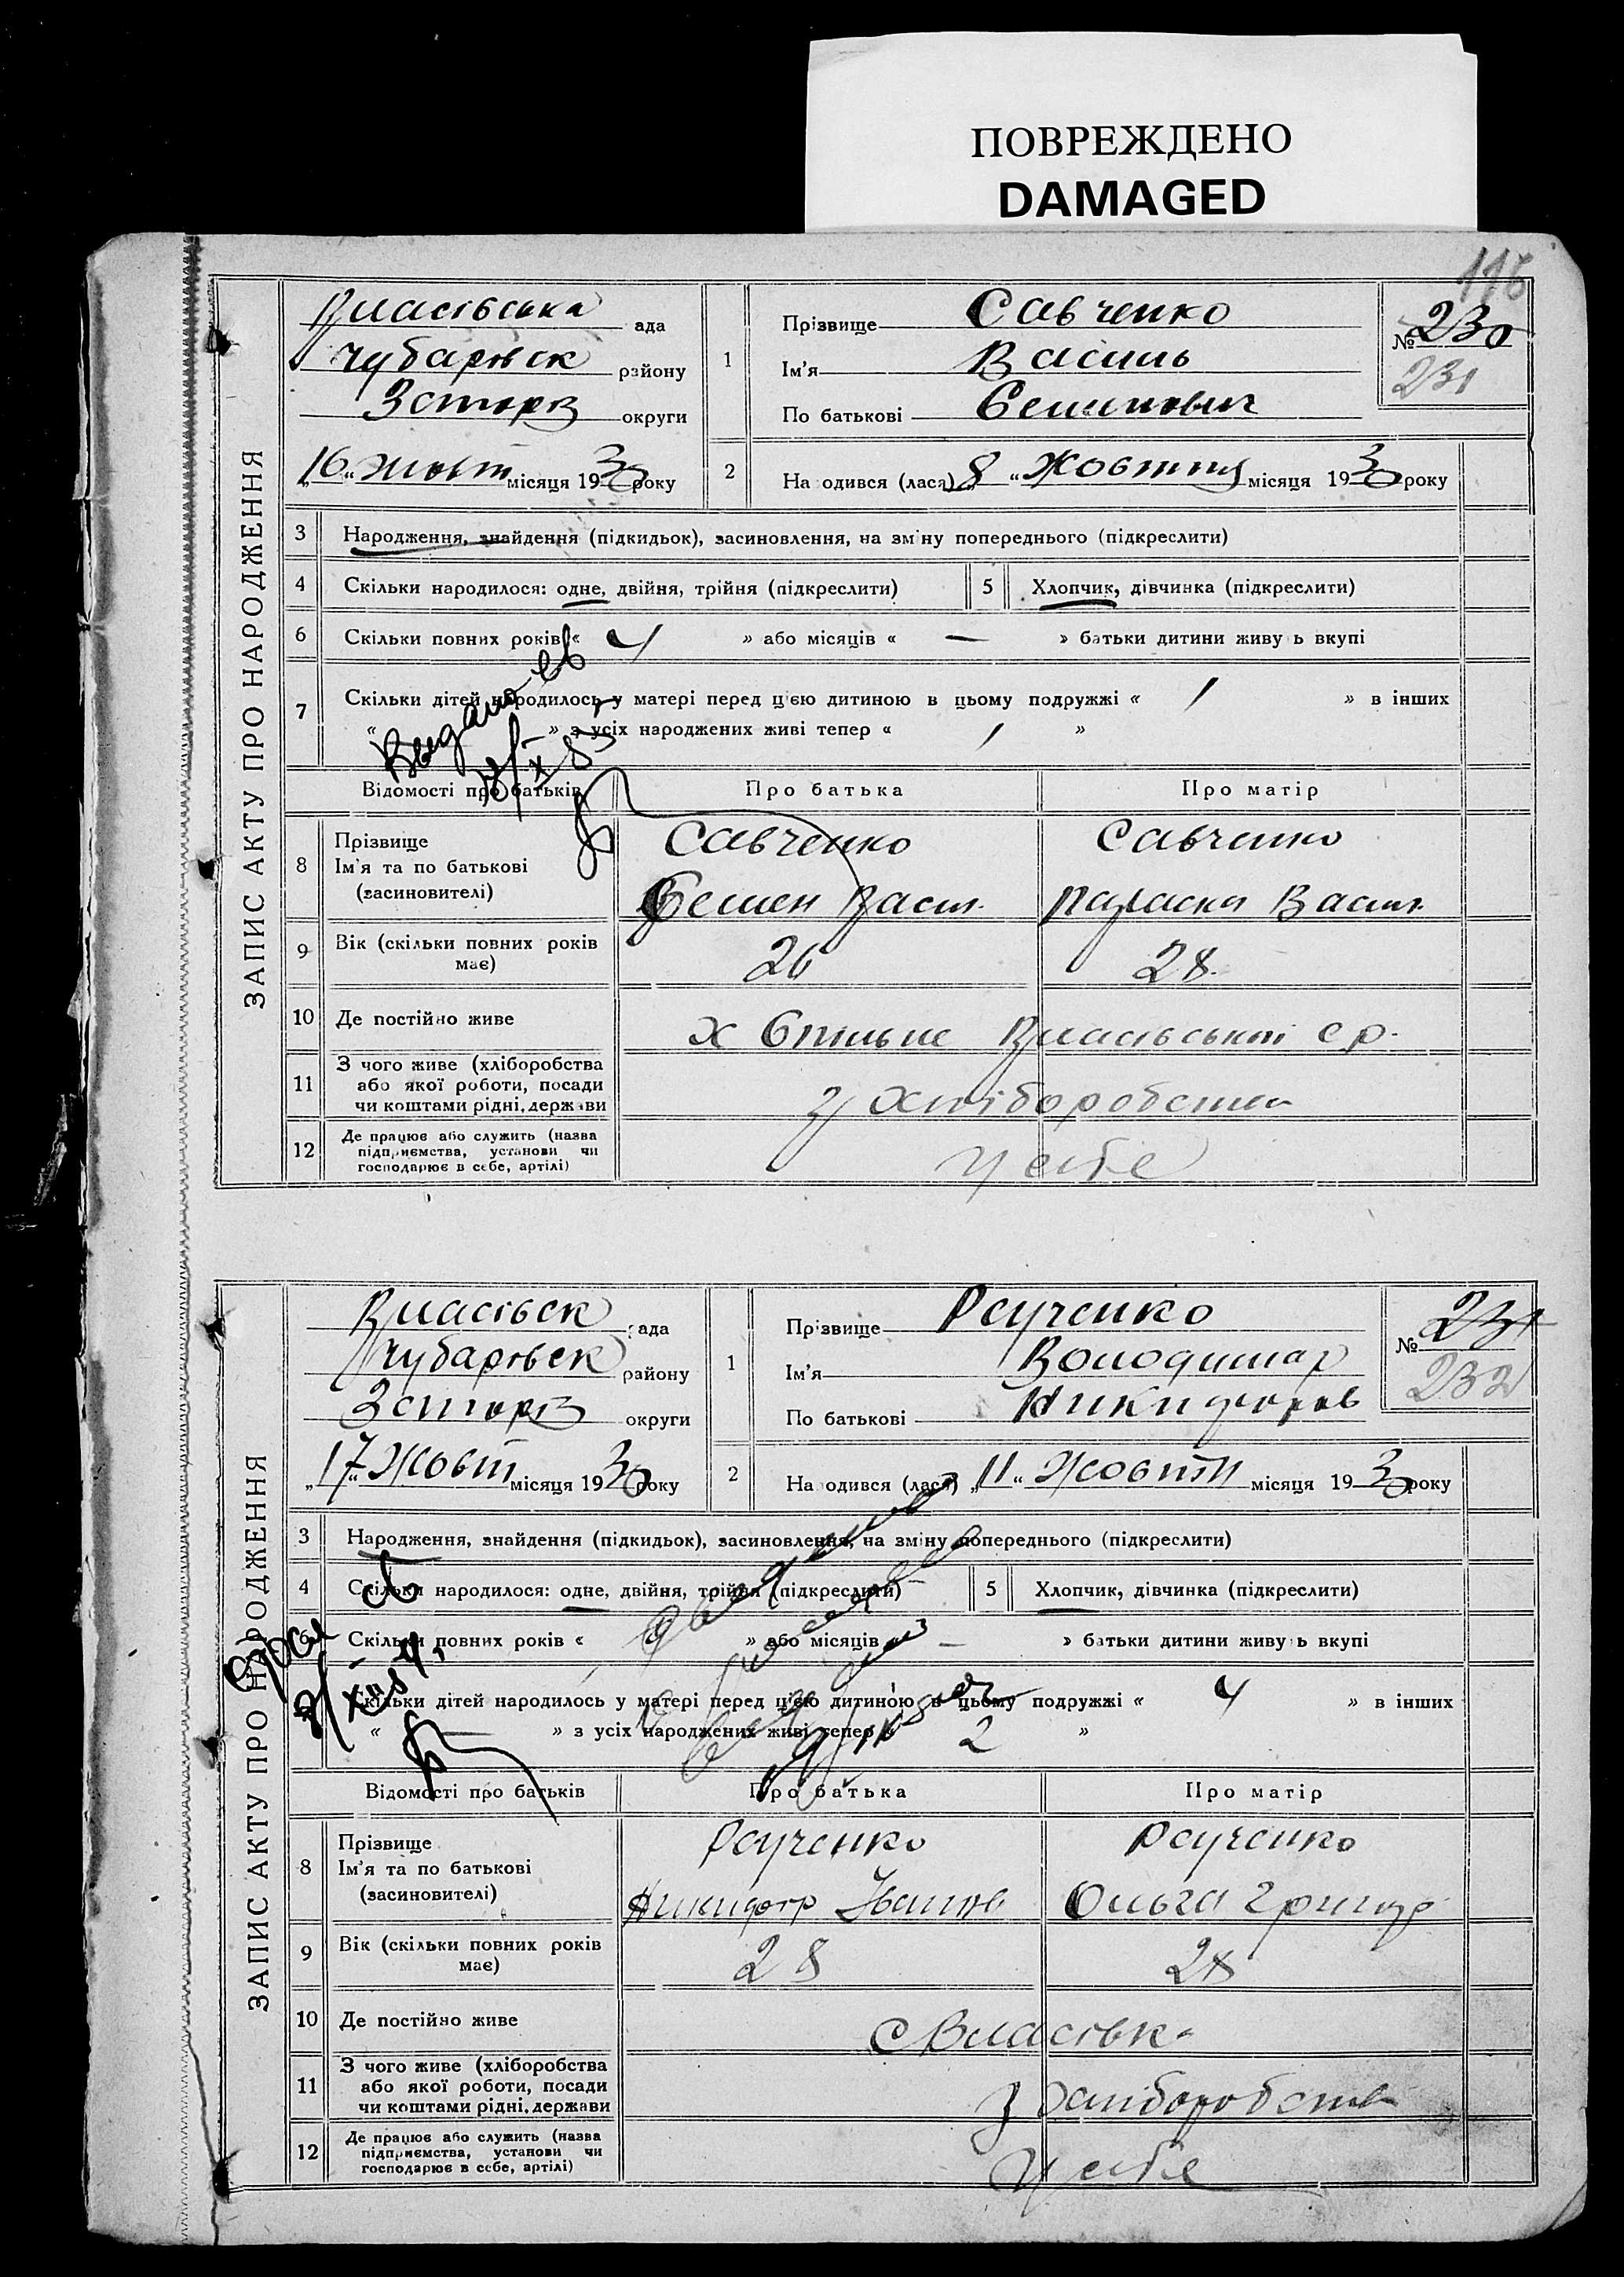 ПОВРЕЖДЕНО
DAMAGED
116
ЗАПИС АКТУ ПРО НАРОДЖЕННЯ
Власівська ада
Чубарівск району
округи
„16“ жовт місяця 1930 року
1
Прізвище Савченко
Ім'я Василь
По батькові Семенович
№ 230
231
2
На одився (лася) „8“ Жовтня місяця 1930 року
3 Народження, знайдення (підкидьок), засиновлення, на зміну попереднього (підкреслити)
4 Скільки народилося: одне, двійня, трійня (підкреслити)
5 Хлопчик, дівчинка (підкреслити)
6 Скільки повних років « 4 » або місяців « — » батьки дитини живу ь вкупі
7 Скільки дітей народилось у матері перед цією дитиною в цьому подружжі « 1 » в інших
« » з усіх народжених живі тепер « 1 »
Выдано св
Відомості про батьків
Про батька
Про матір
8 Прізвище
Ім'я та по батькові
(засиновителі)
Савченко
Семен Васил.
Савченко
Параска Васил.
9 Вік (скільки повних років має)
26
28
10 Де постійно живе
х Спильне Власівської с р.
11 З чого живе (хліборобства
або якої роботи, посади
чи коштами рідні, держави
з хліборобства
12 Де працює або служить (назва
підприємства, установи чи
господарює в себе, артілі)
у себе
ЗАПИС АКТУ ПРО НАРОДЖЕННЯ
Власівск ада
Чубарівск району
округи
„17“ Жовт місяця 1930 року
1
Прізвище
Ім'я Володимир
По батькові Никифоров
№ 231
232
2
На одився (лася) „11“ Жовтн місяця 1930 року
3 Народження, знайдення (підкидьок), засиновлення, на зміну попереднього (підкреслити)
4 Скільки народилося: одне, двійня, трійня (підкреслити)
5 Хлопчик, дівчинка (підкреслити)
6 Скільки повних років « 9 » або місяців « — » батьки дитини живу ь вкупі
Скільки дітей народилось у матері перед цією дитиною в цьому подружжі « 4 » в інших
« — » з усіх народжених живі тепер « 2 »
Відомості про батьків
Про батька
Про матір
8 Прізвище
Ім'я та по батькові
(засиновителі)
Никифор Іванов
Ольга Григор
9 Вік (скільки повних років має)
28
28
10 Де постійно живе
с Власівка
11 З чого живе (хліборобства
або якої роботи, посади
чи коштами рідні, держави
з хліборобства
12 Де працює або служить (назва
підприємства, установи чи
господарює в себе, артілі)
у себе